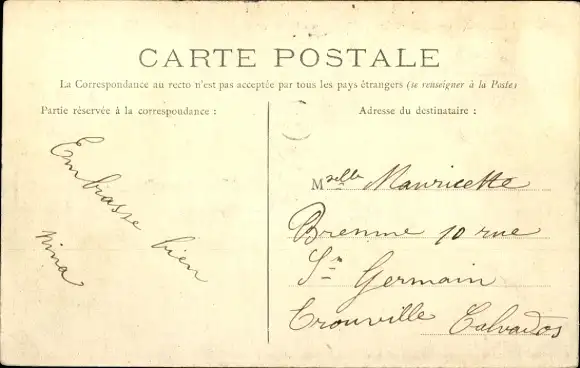 CARTE POSTALE
La Correspondance au recto n'est pas acceptée par tous les pays étrangers (se renseigner à la Poste)
Partie réservée à la correspondance :
Embrasse bien
Nina
Adresse du destinataire :
Mselle Mauricette
Bremme 10 rue
St Germain
Trouville Calvados